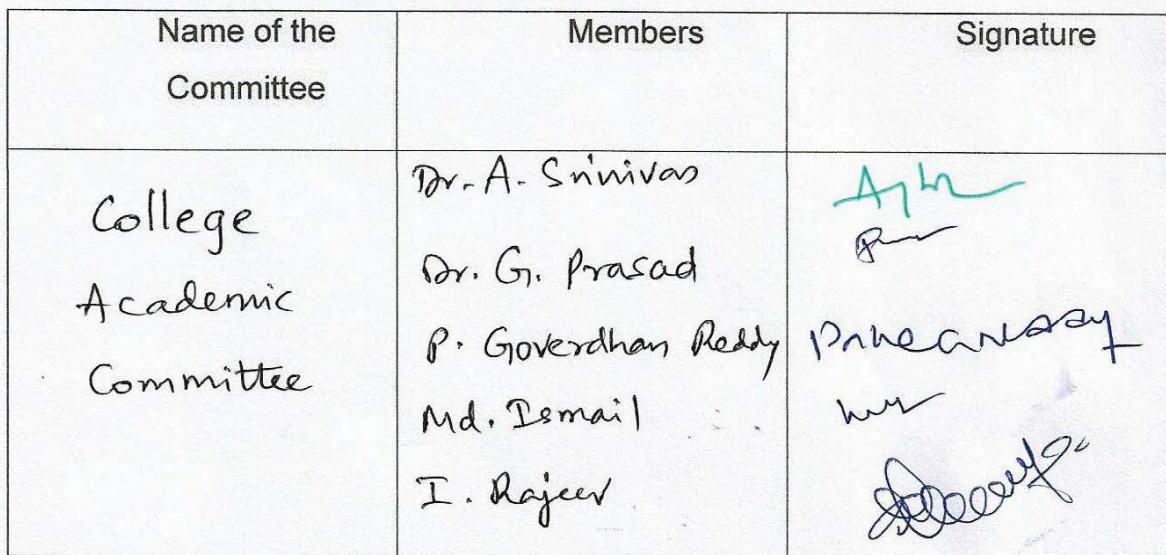 Name of the
Committee
Members
Signature
College
Academic
Committee
Dr. A. Srinivas
Dr. G. Prasad
P. Goverdhan Reddy
Md. Ismail
I. Rajeer